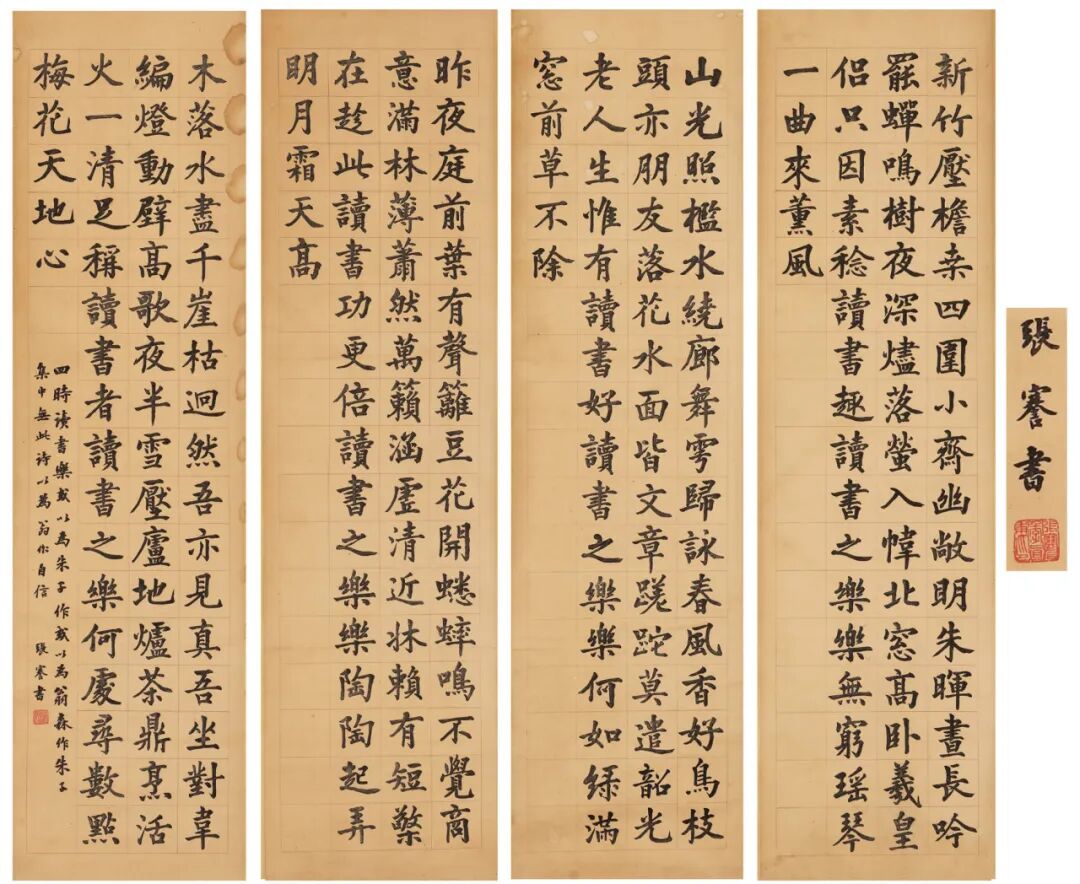 新竹壓檐桒四圍小齋幽敞明朱暉晝長吟
罷蟬鳴樹夜深燼落螢入幃北窓高臥羲皇
侶只因素稔讀書趣讀書之樂樂無窮瑤琴
一曲來薰風
山光照檻水繞廊舞雩歸詠春風香好鳥枝
頭亦朋友落花水面皆文章蹉跎莫遣韶光
老人生惟有讀書好讀書之樂樂何如綠滿
窓前草不除
昨夜庭前葉有聲籬豆花開蟋蟀鳴不覺商
意滿林薄蕭然萬籟涵虛清近牀賴有短檠
在趁此讀書功更倍讀書之樂樂陶陶起弄
明月霜天高
木落水盡千崖枯迥然吾亦見真吾坐對韋
編燈動壁高歌夜半雪壓廬地爐茶鼎烹活
火一清足稱讀書者讀書之樂何處尋數點
梅花天地心
四時讀書樂或以為朱子作或以為翁森作朱子
集中無此詩以為翁作自信 張謇書
張謇書